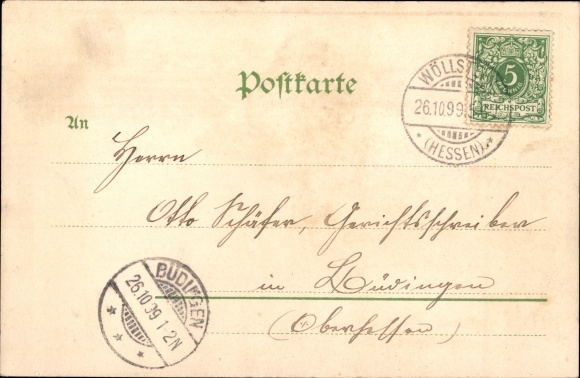 WÖLLST
26.10.99.
* (HESSEN) *
5
REICHSPOST
Postkarte
An
Herrn
Otto Schäfer, Gerichtsschreiber
in Büdingen
(Oberhessen)
BÜDINGEN
26.10.99 1-2N